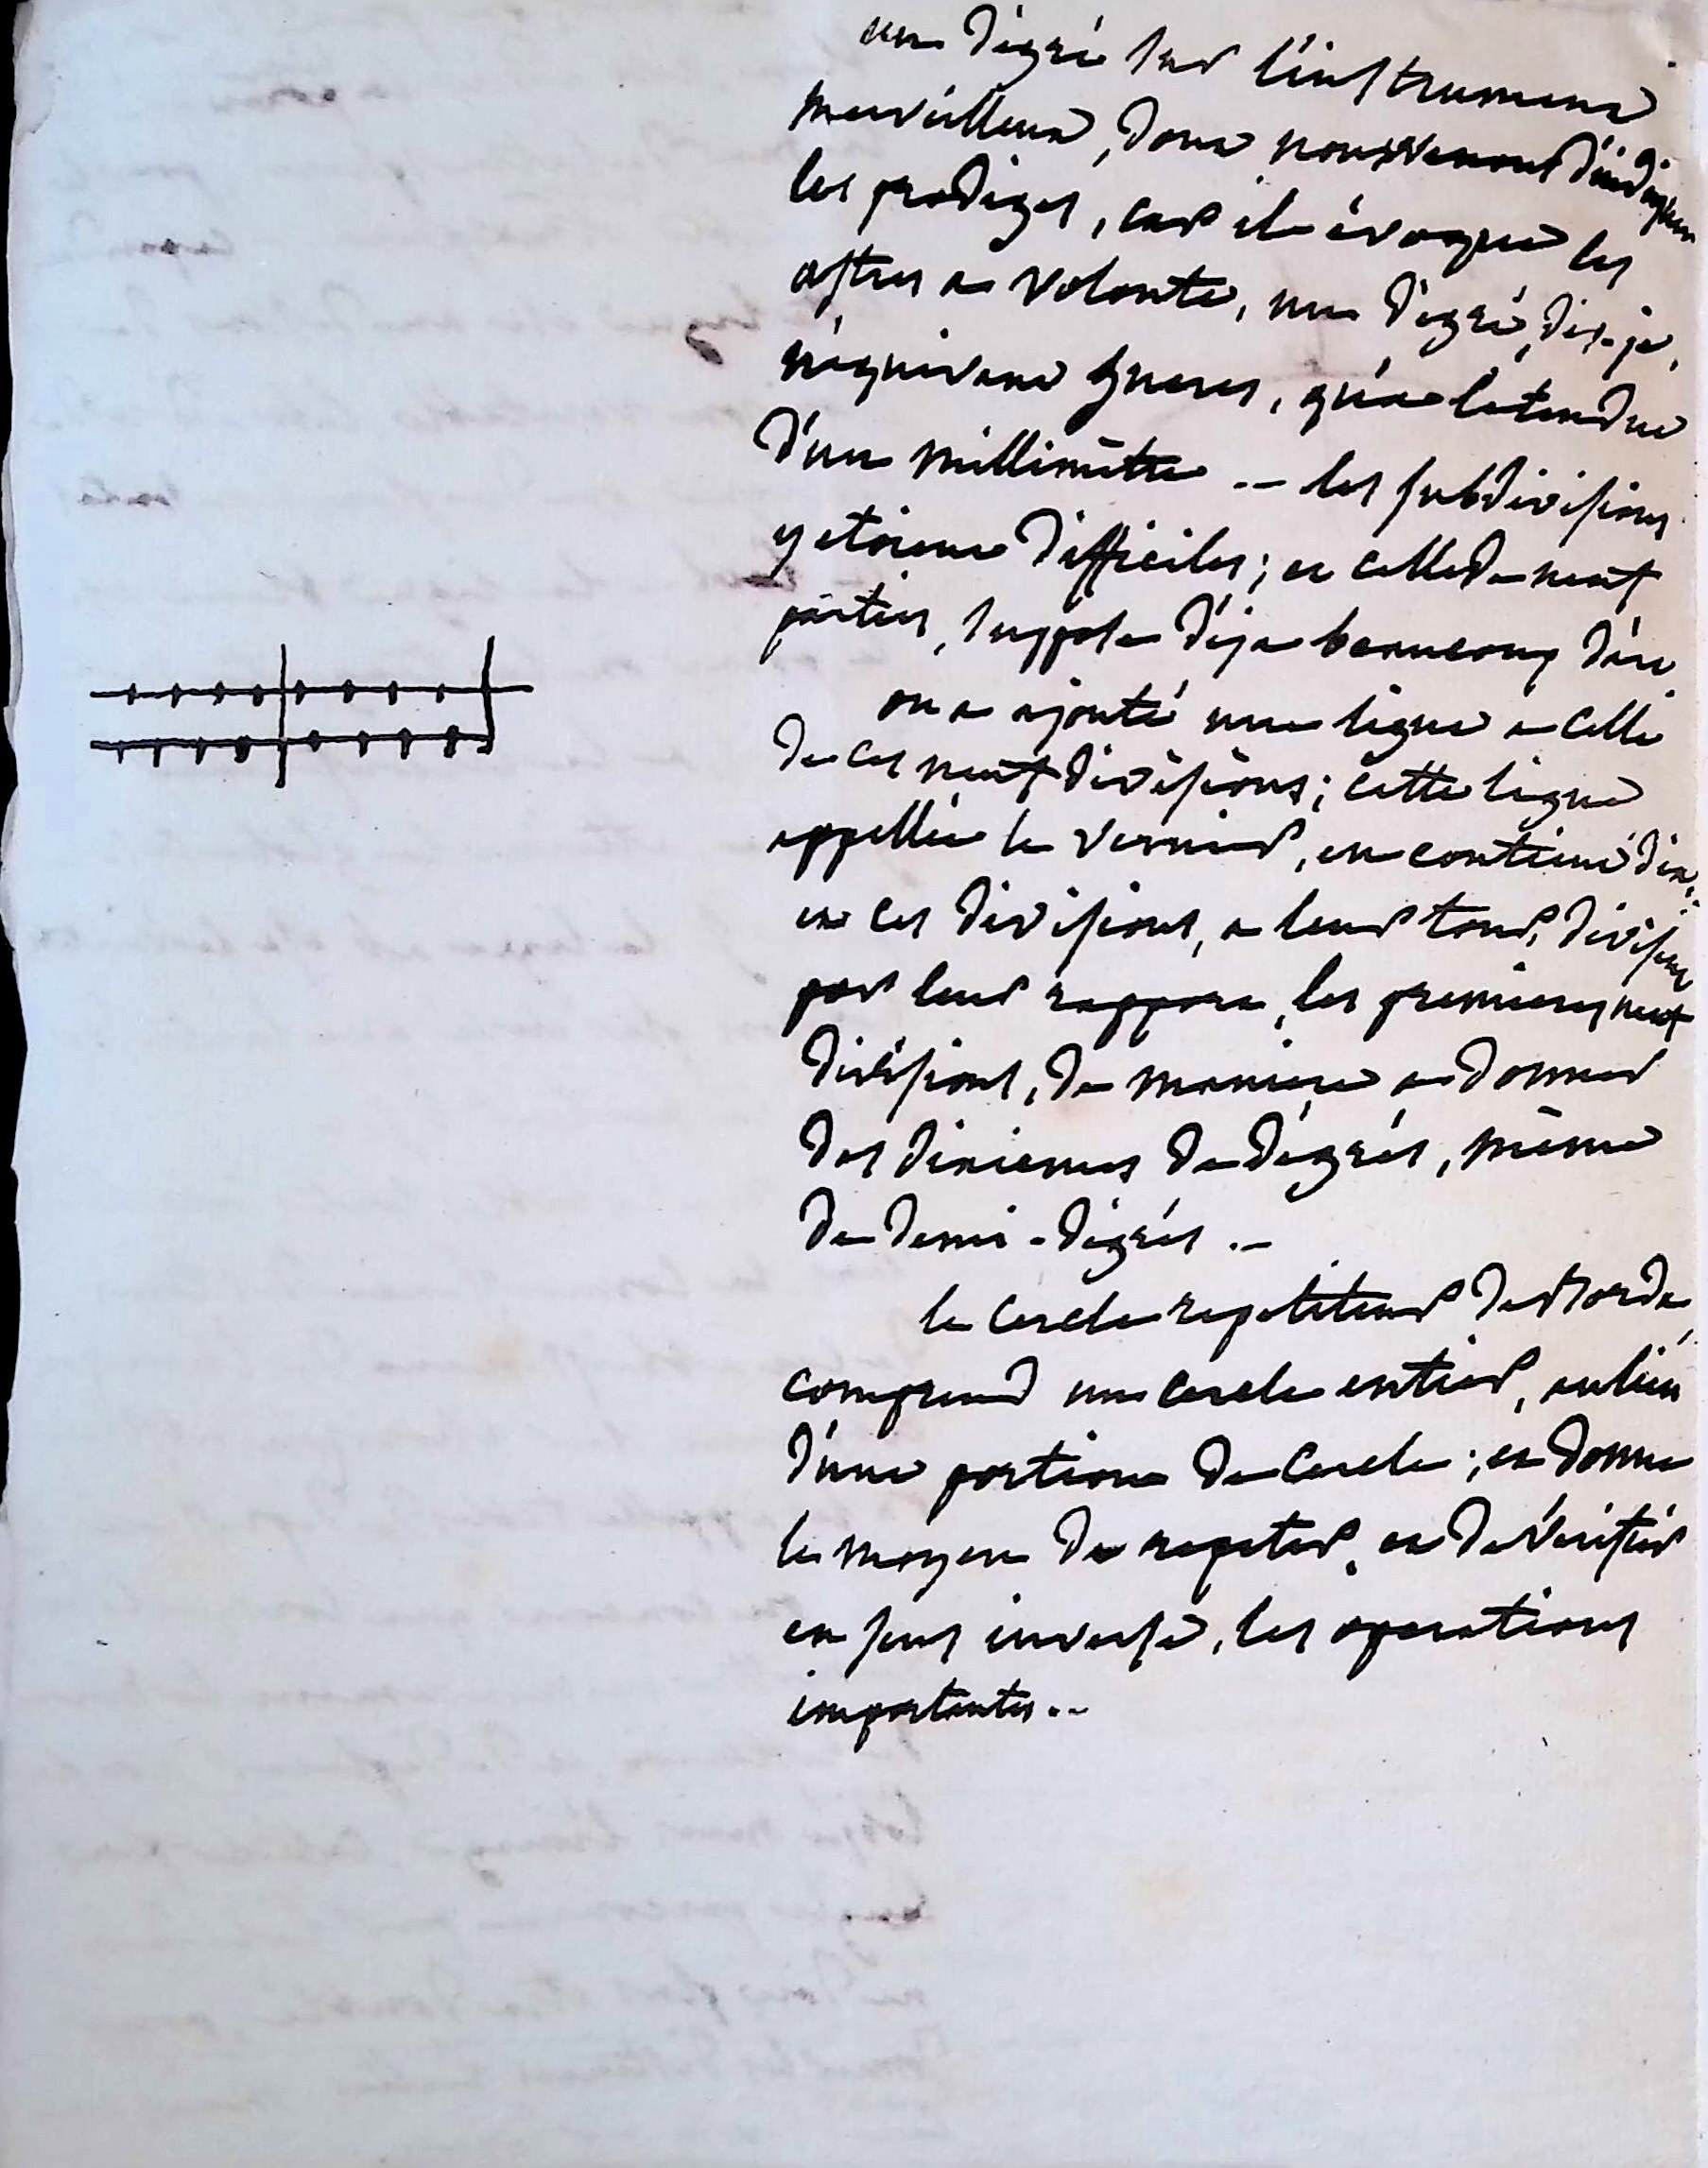 un dégré sur l'instrument
merveilleux, dont nous venons d'indiquer
les prodiges, car il évoque les
astres a volonté, un dégré, dis-je,
n'équivaut gueres, qu'a l'etendue
d'un millimêtre -- les subdivisions
y etoient difficiles; et celle de neuf
parties, suppose déja beaucoup d'art.
on a ajouté une ligne a celle
de ces neuf divisions; cette ligne
appellée le vernier, en contient dix;
et ces divisions, a leur tour, divisent
par leur rapport, les premieres neuf
divisions, de maniere a donner
des dixiemes de dégrés, même
de demi-dégrés .-
le cercle repetiteur de Borda,
comprend un cercle entier, au lieu
d'une portion de cercle; et donne
le moyen de repeter, et de vérifier
en sens inverse, les operations
importantes..